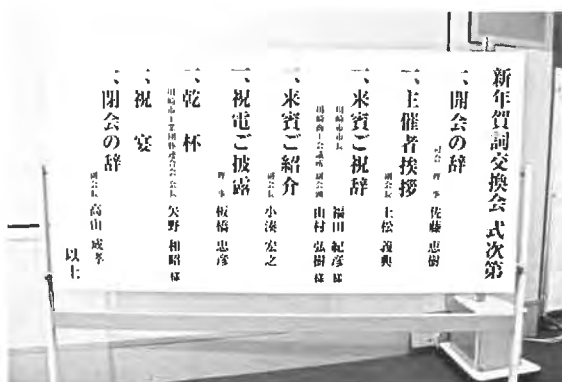 新年賀詞交換会 式次第
一、開会の辞
司会 理事 佐藤 恵樹
一、主催者挨拶
副会長 上松 義典
一、来賓ご祝辞
川崎市市長 福田 紀彦 様
川崎商工会議所 副会頭 山村 弘樹 様
一、来賓ご紹介
副会長 小湊 宏之
一、祝電ご披露
理事 板橋 忠彦
一、乾杯
川崎市工業団体連合会 会長 矢野 和昭 様
一、祝宴
一、閉会の辞
副会長 髙山 成孝
以上